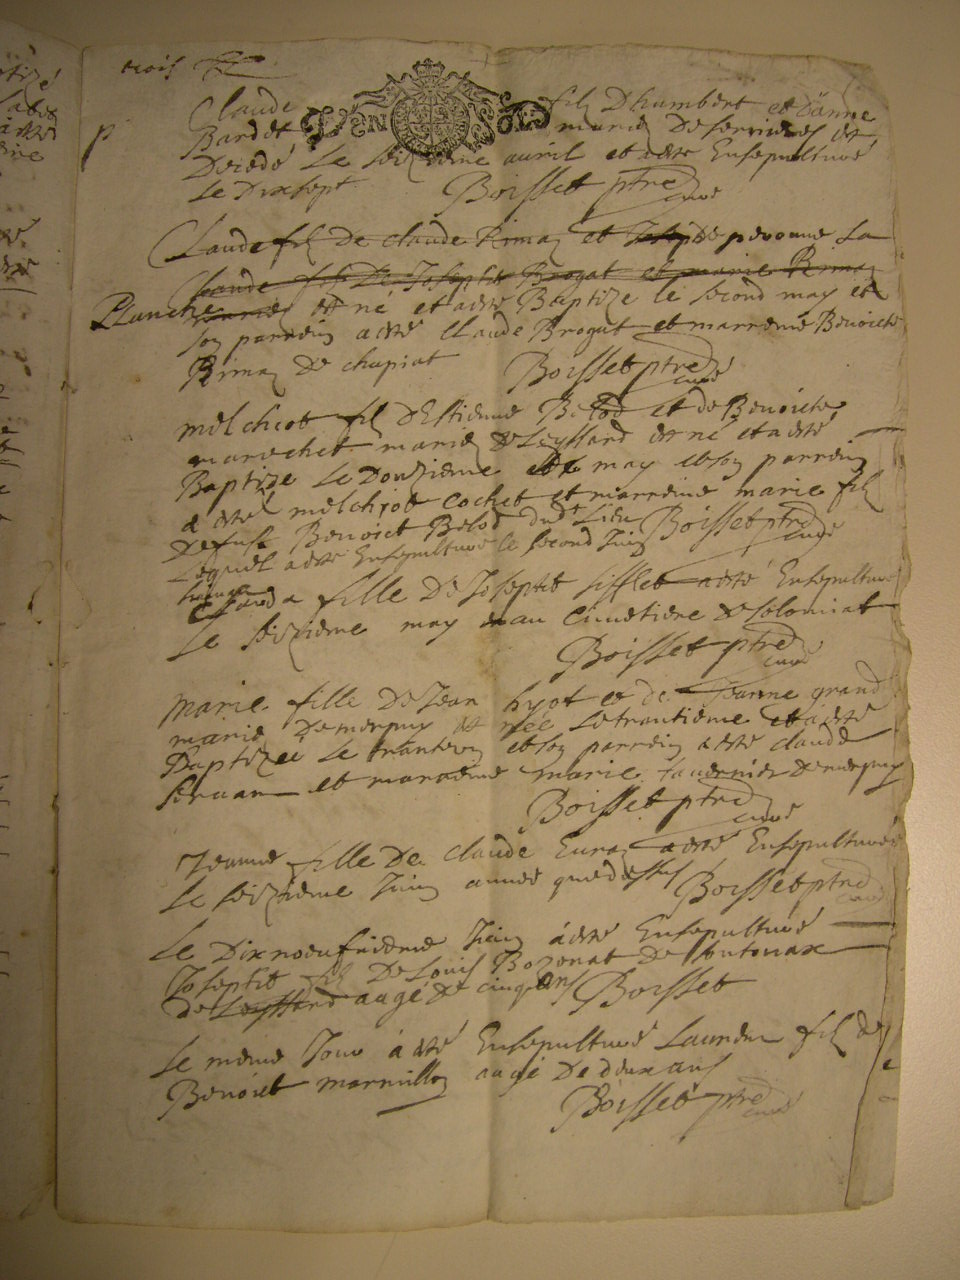 trois
Claude fils D humbert et D anne
Bardet mariez De serrieres est
Decedé Le seizieme auril et a esté Ensepulturé
Le Dixsept Boisset ptre curé
Claude fils De claude Rimaz et peronne La
Claude fils De Joseph Brogat et marie Rimaz
Planche est né et a esté Baptize le second may et
son parrein a esté Claude Brogat et marreine Benoiste
Rimaz De chapiat Boisset ptre curé
melchiot fils D Estienne Belod et de Benoiste
marechet mariez De Leyssard est né et a esté
Baptize Le Douzieme may et son parrein
a esté melchiot cochet et marreine marie fille
De fust Benoist Belod dud Lieu Boisset ptre curé
Lequel a esté Ensepulturé le second Juin
Clauda fille De Joseph sifflet a esté Ensepulturée
Le seizieme may au Cimetiere De solomiat
Boisset ptre curé
marie fille De Jean hyot et de Jeanne grand
mariez De merpuy est née Le trantieme et a esté
Baptizee Le trante un et son parrein a esté claude
seruan et marreine marie tauernier De merpuy
Boisset ptre curé
Jeanne fille De claude Euraz a esté Ensepulturée
Le seizieme Juin année que dessus Boisset ptre curé
Le Dixneufuieme Juin a esté Ensepulturé
Joseph fils De Louis Bozonat De
De Leyssard augé De cinq ans Boisset
Le meme Jour a esté Ensepulturé Laurent fils de
Benoist marmillon augé De deux ans
Boisset ptre curé